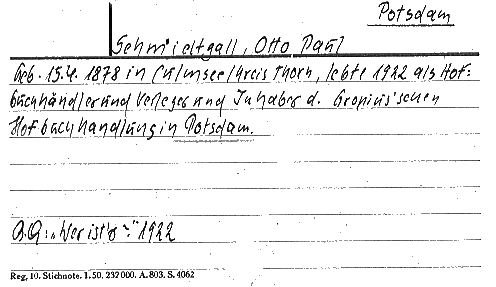 Potsdam
Schmidtgall, Otto Paul
Geb. 15.4. 1878 in Culmsee/Kreis Thorn, lebte 1922 als Hof-
buchhändler und Verleger und Inhaber d. Gropius'schen
Hofbuchhandlung in Potsdam.
A.Q: "Wer ist's-" 1922
Reg. 10. Stichnote. 1. 50. 232000. A. 803. S. 4062